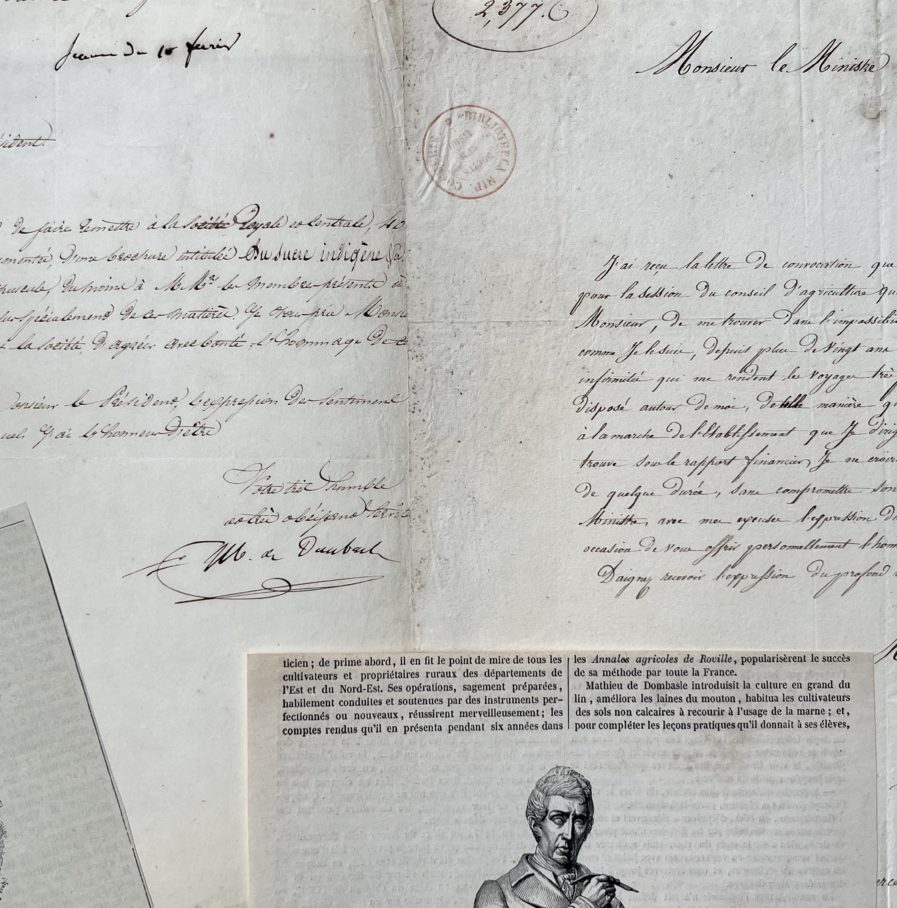 Séance du 10 février
de faire remettre à la Société Royale et Centrale, 40
d'une brochure intitulée Du sucre indigène
du moins à M. Mrs les membres
de ces matières. Je vous prie Monsie
la Société, d'agréer avec bonté l'hommage de c
Monsieur le Président, l'expression des sentimens
j'ai l'honneur d'être
Votre très humble
et très obéissant Servit
M. de Dombasle
2,377. C
Monsieur le Ministre
BIBLIOTHECA
J'ai reçu la lettre de convocation que
pour la session du conseil d'agriculture qu
Monsieur, de me trouver dans l'impossibili
comme Je le suis, depuis plus de vingt ans
infirmités qui me rendent les voyages trè
disposé autour de moi, de telle manière qu
à la marche de l'établissement que Je dirig
trouve sous le rapport financier, Je ne croirai
de quelque durée, sans compromettre son
Ministre, avec mes excuses l'expression d
occasion de vous offrir personnellement l'hom
Daignez recevoir l'expression du profond
ticien ; de prime abord, il en fit le point de mire de tous les
cultivateurs et propriétaires ruraux des départements de
l'Est et du Nord-Est. Ses opérations, sagement préparées,
habilement conduites et soutenues par des instruments per-
fectionnés ou nouveaux, réussirent merveilleusement ; les
comptes rendus qu'il en présenta pendant six années dans
les Annales agricoles de Roville, popularisèrent le succès
de sa méthode par toute la France.
Mathieu de Dombasle introduisit la culture en grand du
lin, améliora les laines du mouton, habitua les cultivateurs
des sols non calcaires à recourir à l'usage de la marne ; et,
pour compléter les leçons pratiques qu'il donnait à ses élèves,